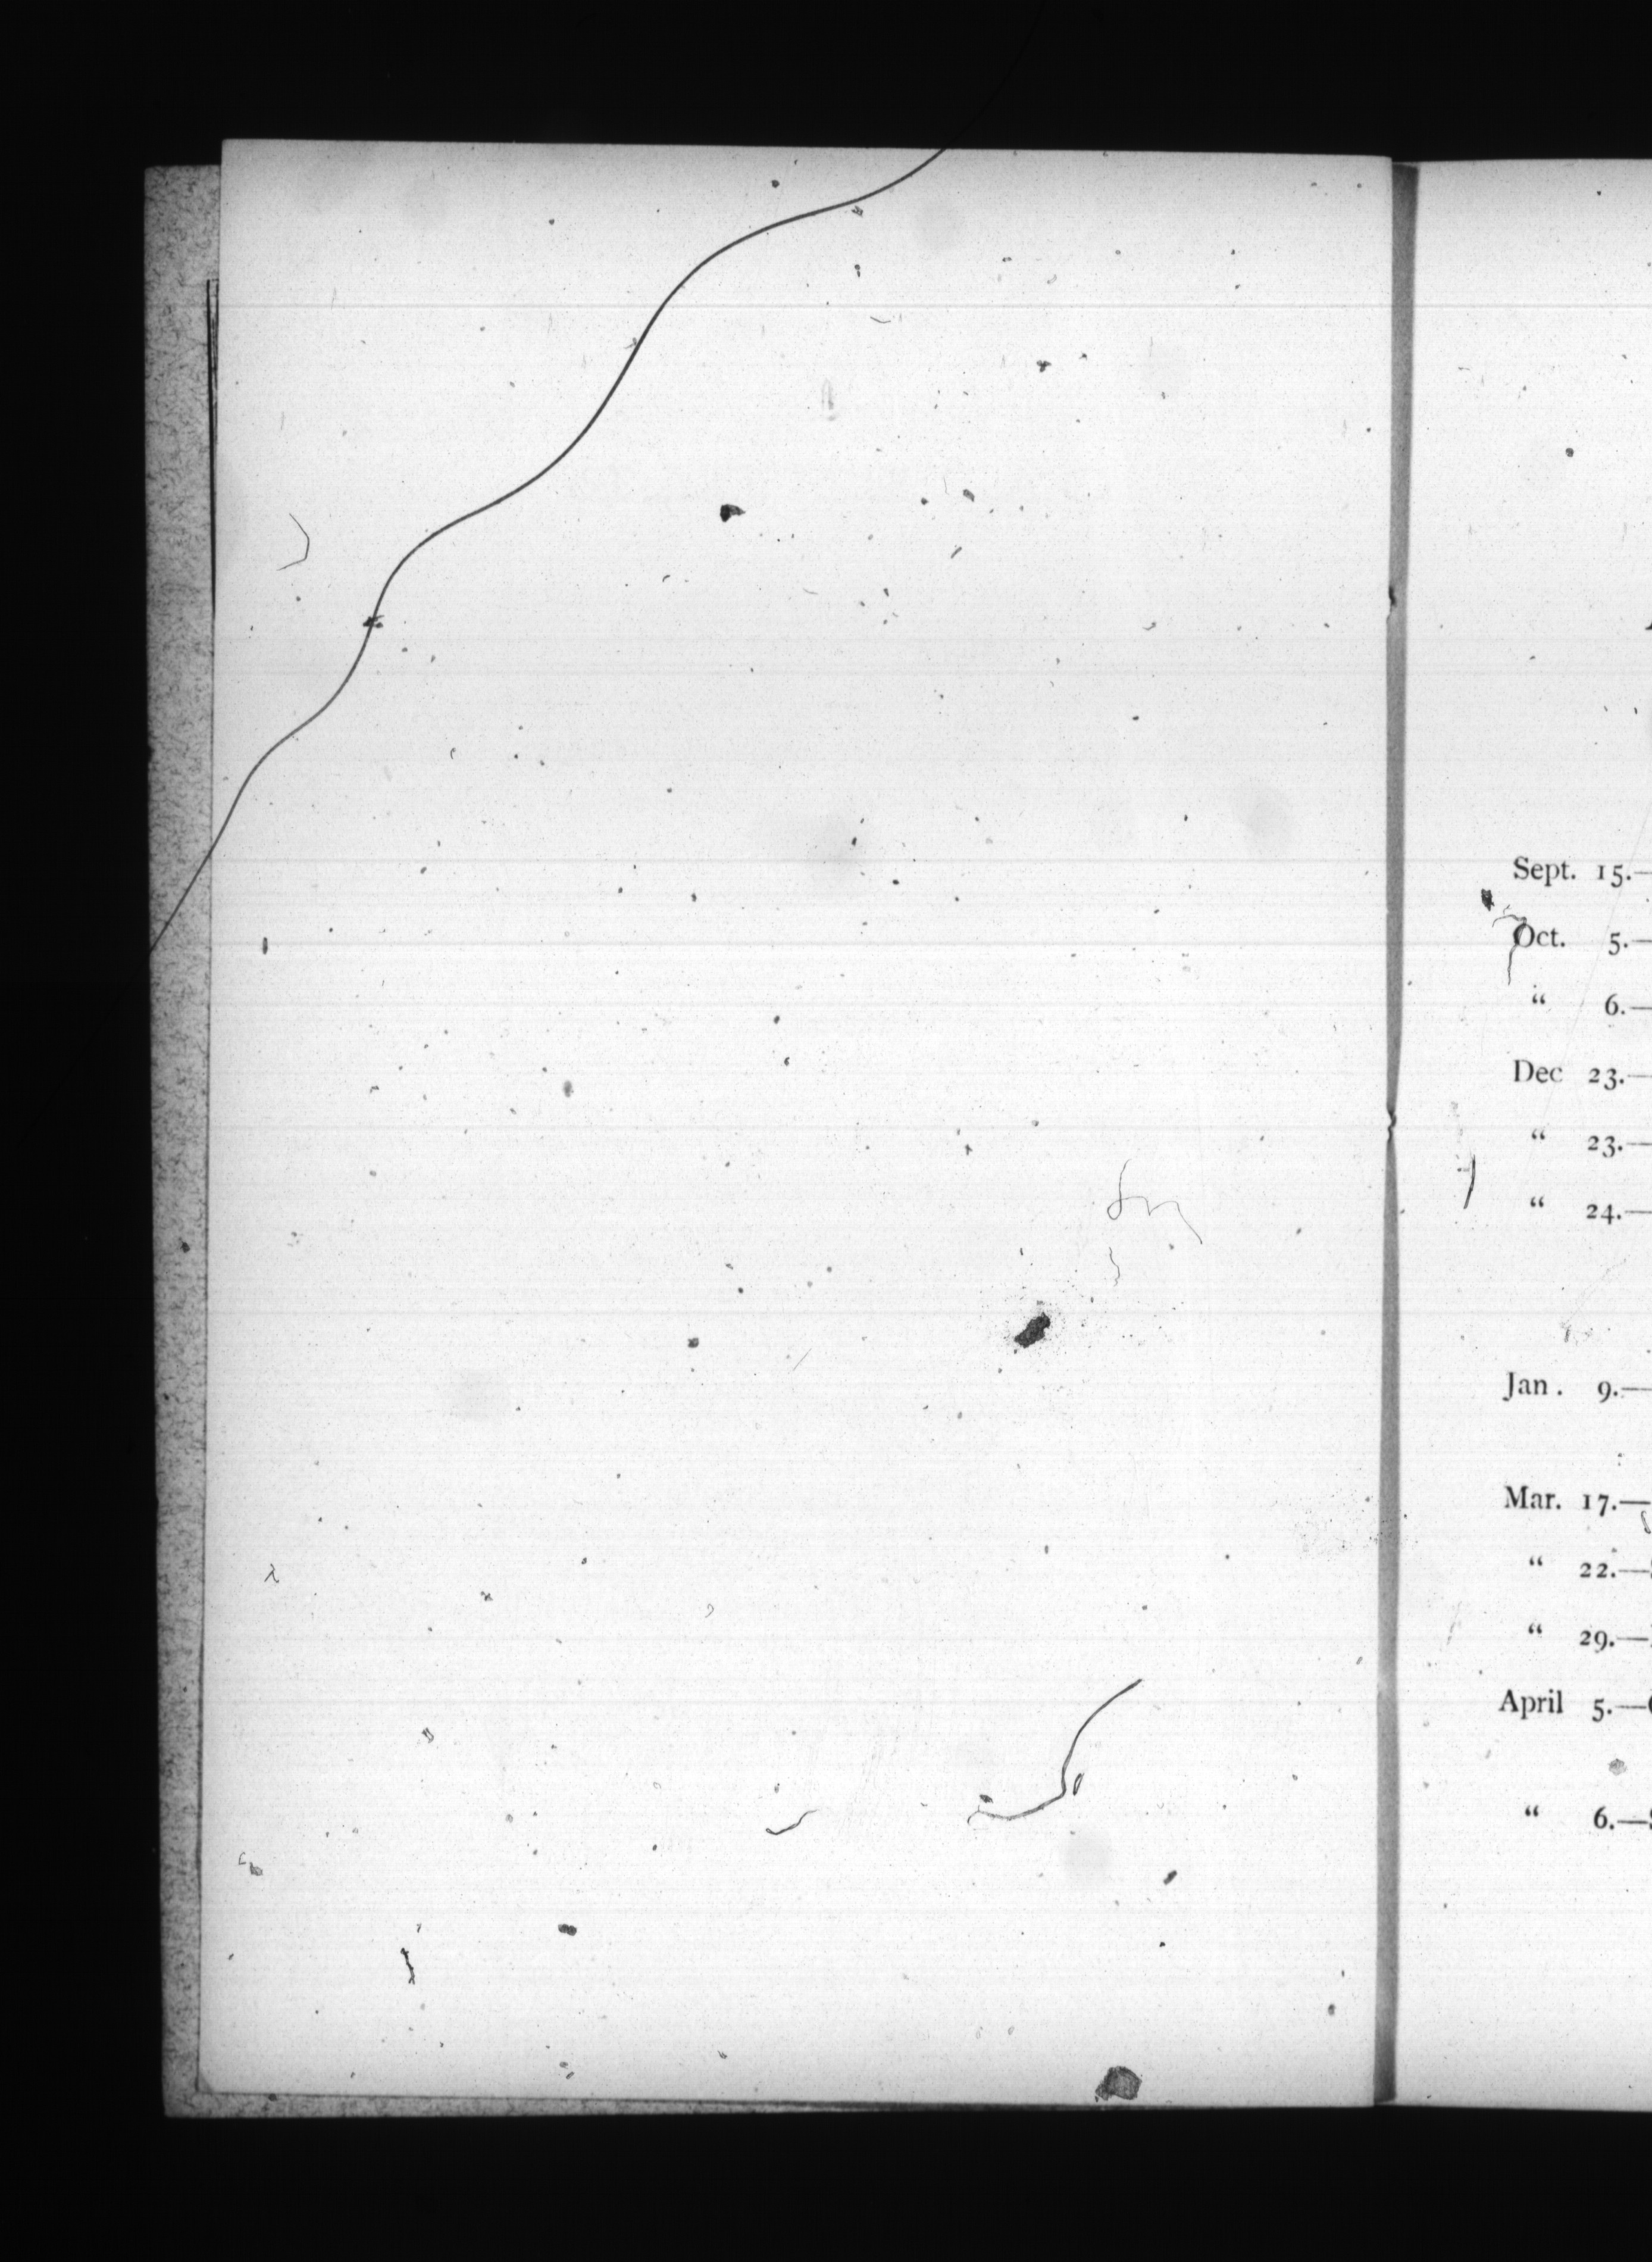 Sept. 15.—
Oct. 5.—
“ 6.—
Dec 23.—
“ 23.—
“ 24.—
Jan. 9.—
Mar. 17.—
“ 22.—
“ 29.—
April 5.—
“ 6.—